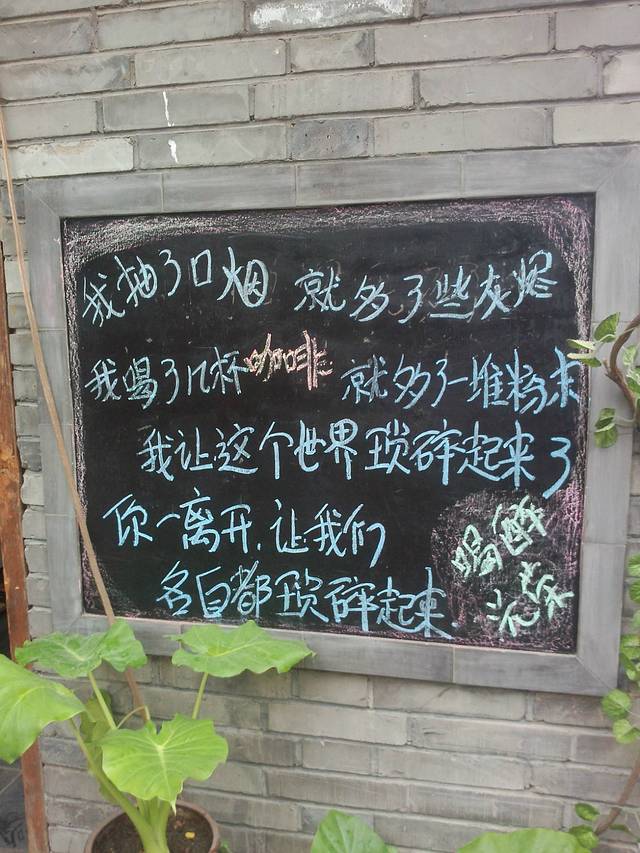 我抽了口烟 就多了些灰烬
我喝了几杯咖啡 就多了一堆粉末
我让这个世界琐碎起来了
你一离开,让我们
各自都琐碎起来.
喝醉